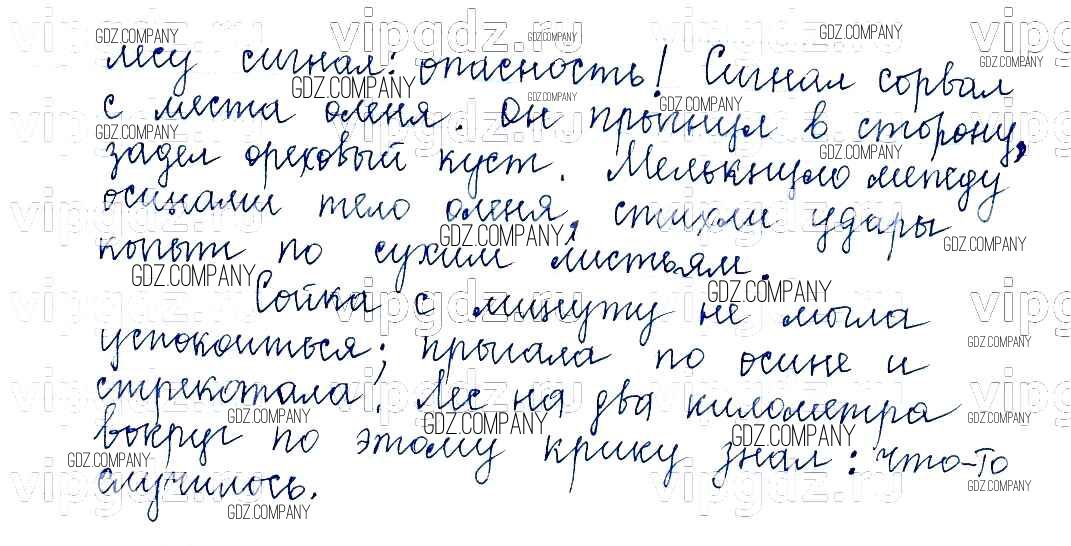 лесу сигнал: опасность! Сигнал сорвал
с места оленя. Он прыгнул в сторону,
задел ореховый куст. Мелькнуло между
осинами тело оленя, стихли удары
копыт по сухим листьям.
Сойка с минуту не могла
успокоиться; прыгала по осине и
стрекотала. Лес на два километра
вокруг по этому крику знал: что-то
случилось.
vipgdz.ru
GDZ.COMPANY